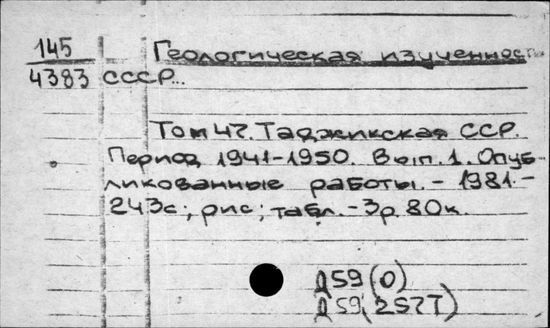 145 Геологическая изученность
4383 СССР...
Том 47. Таджикская ССР.
Период 1941-1950. Вып. 1. Опуб-
ликованные работы. - 1981. -
243с; рис; табл. - 3р. 80к.
Д59(0)
Д59(2S7T)